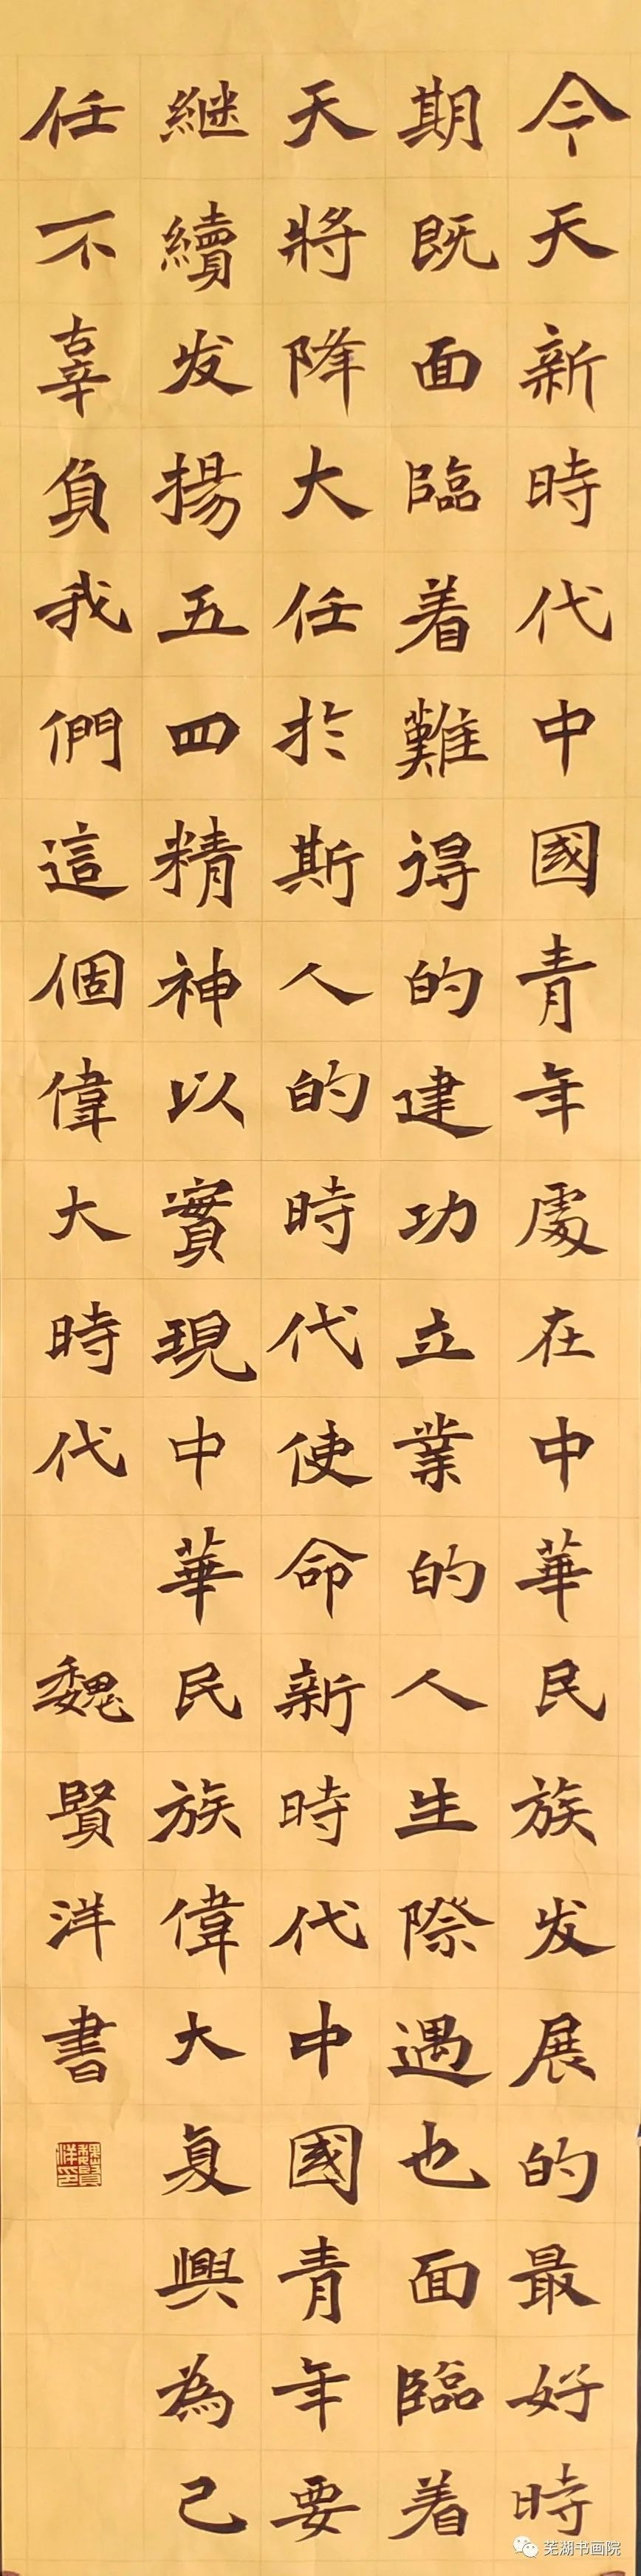 今天新時代中國青年處在中華民族发展的最好時
期既面臨着難得的建功立業的人生際遇也面臨着
天將降大任於斯人的時代使命新時代中國青年要
継續发揚五四精神以實現中華民族偉大复興為己
任不辜負我們這個偉大時代
魏賢洋書
魏賢洋印
芜湖书画院